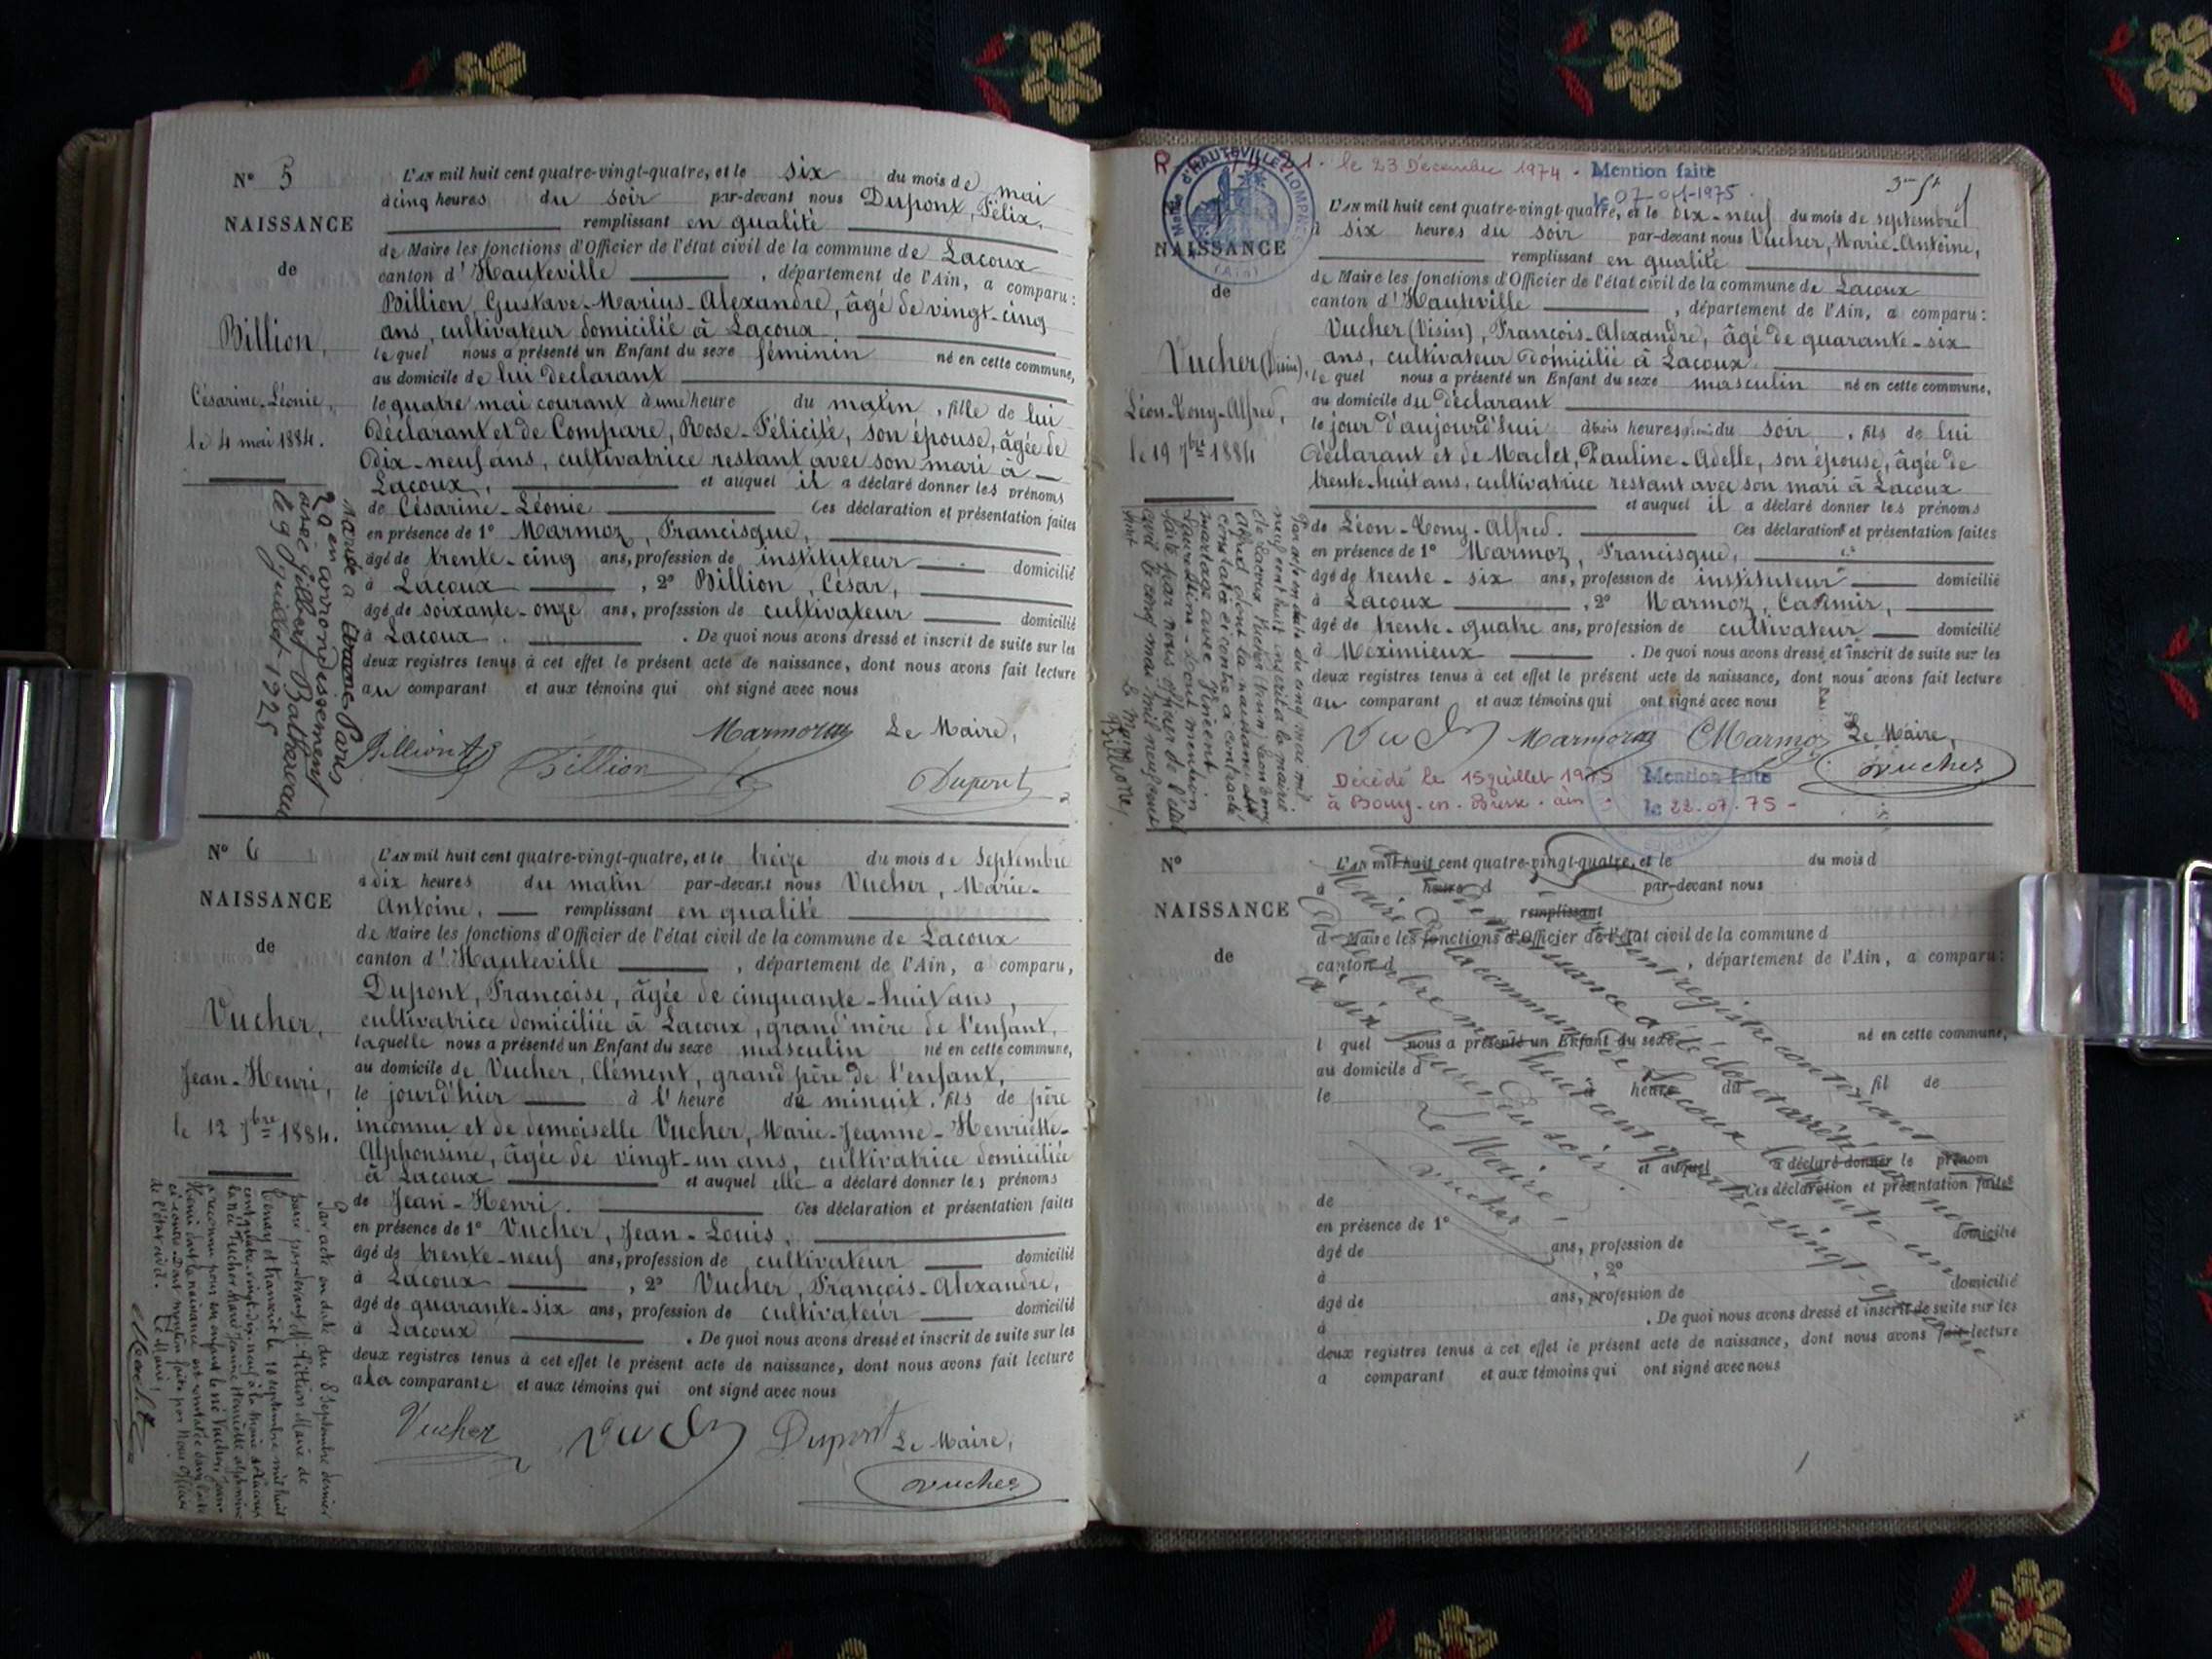 N° 5
NAISSANCE
de
Billion,
Césarine-Léonie,
le 4 mai 1884.
L'AN mil huit cent quatre-vingt-quatre, et le six du mois de mai
à cinq heures du soir par-devant nous Dupont, Félix,
remplissant en qualité
de Maire les fonctions d'Officier de l'état civil de la commune de Lacoux
canton d'Hauteville, département de l'Ain, a comparu:
Billion, Gustave-Marius-Alexandre, âgé de vingt-cinq
ans, cultivateur domicilié à Lacoux
lequel nous a présenté un Enfant du sexe féminin né en cette commune,
au domicile de lui déclarant
le quatre mai courant à une heure du matin, fille de lui
déclarant et de Compare, Rose-Félicité, son épouse, âgée de
dix-neuf ans, cultivatrice restant avec son mari à
Lacoux, et auquel il a déclaré donner les prénoms
de Césarine-Léonie Ces déclaration et présentation faites
en présence de 1° Marmoz, Francisque,
âgé de trente-cinq ans, profession de instituteur domicilié
à Lacoux, 2° Billion, César,
âgé de soixante-onze ans, profession de cultivateur domicilié
à Lacoux. De quoi nous avons dressé et inscrit de suite sur les
deux registres tenus à cet effet le présent acte de naissance, dont nous avons fait lecture
au comparant et aux témoins qui ont signé avec nous
Billion Billion Marmoz Le Maire,
Dupont
Mariée à Paris
20 en arrondissement
avec Gilbert
le 9 Juillet 1925
N° 6
NAISSANCE
de
Vucher,
Jean-Henri,
le 12 7bre 1884.
L'AN mil huit cent quatre-vingt-quatre, et le treize du mois de Septembre
à dix heures du matin par-devant nous Vucher, Marie-
Antoine, remplissant en qualité
de Maire les fonctions d'Officier de l'état civil de la commune de Lacoux
canton d'Hauteville, département de l'Ain, a comparu,
Dupont, Françoise, âgée de cinquante-huit ans,
cultivatrice domiciliée à Lacoux, grand'mère de l'enfant,
laquelle nous a présenté un Enfant du sexe masculin né en cette commune,
au domicile de Vucher, Clément, grand père de l'enfant,
le jour d'hier à l'heure de minuit, fils de père
inconnu et de demoiselle Vucher, Marie-Jeanne-Henriette-
Alphonsine, âgée de vingt-un ans, cultivatrice domiciliée
à Lacoux et auquel elle a déclaré donner les prénoms
de Jean-Henri. Ces déclaration et présentation faites
en présence de 1° Vucher, Jean-Louis,
âgé de trente-neuf ans, profession de cultivateur domicilié
à Lacoux, 2° Vucher, François-Alexandre,
âgé de quarante-six ans, profession de cultivateur domicilié
à Lacoux. De quoi nous avons dressé et inscrit de suite sur les
deux registres tenus à cet effet le présent acte de naissance, dont nous avons fait lecture
à la comparante et aux témoins qui ont signé avec nous
Vucher Vucher Dupont Le Maire,
Vucher
Par acte en date du 8 Septembre dernier
passé par-devant M. Maire de
Tenay et transcrit le 18 septembre mil huit
cent quatre-vingt-dix-neuf à la Mairie de Lacoux
la née Vucher Marie Jeanne Henriette Alphonsine
a reconnu pour son enfant le né Vucher Jean-
Henri dont la naissance est constatée dans l'acte
ci-contre. Dont mention faite par Nous Officier
de l'état civil. Le Maire,
le 23 Décembre 1974.
Mention faite
le 07-01-1975
Mairie d'HAUTEVILLE-LOMPNES
(AIN)
NAISSANCE
de
Vucher (Visin),
Léon-Tony-Alfred,
le 19 7bre 1884
L'AN mil huit cent quatre-vingt-quatre, et le dix-neuf du mois de septembre
à six heures du soir par-devant nous Vucher, Marie-Antoine,
remplissant en qualité
de Maire les fonctions d'Officier de l'état civil de la commune de Lacoux
canton d'Hauteville, département de l'Ain, a comparu:
Vucher (Visin), François-Alexandre, âgé de quarante-six
ans, cultivateur domicilié à Lacoux
lequel nous a présenté un Enfant du sexe masculin né en cette commune,
au domicile du déclarant
le jour d'aujourd'hui à trois heures du soir, fils de lui
déclarant et de Maclet, Pauline-Adelle, son épouse, âgée de
trente-huit ans, cultivatrice restant avec son mari à Lacoux
et auquel il a déclaré donner les prénoms
de Léon-Tony-Alfred. Ces déclaration et présentation faites
en présence de 1° Marmoz, Francisque,
âgé de trente-six ans, profession de instituteur domicilié
à Lacoux, 2° Marmoz, Casimir,
âgé de trente-quatre ans, profession de cultivateur domicilié
à Méximieux. De quoi nous avons dressé et inscrit de suite sur les
deux registres tenus à cet effet le présent acte de naissance, dont nous avons fait lecture
au comparant et aux témoins qui ont signé avec nous
Vucher Marmoz CMarmoz Le Maire,
Vucher
Décédé le 15 juillet 1975
à Bourg-en-Bresse. ain
Mention faite
le 22.07.75
Par acte en date du cinq mai mil
neuf cent huit inscrit à la mairie
de Lacoux Vucher (Visin) Léon Tony
Alfred dont la naissance est
constatée ci-contre a contracté
mariage avec
dont mention
faite par nous officier de l'état
civil le cinq mai mil neuf cent
huit
Le Maire
N°
NAISSANCE
de
L'AN mil huit cent quatre-vingt-quatre, et le du mois d
à heures d par-devant nous
remplissant
d Maire les fonctions d'Officier de l'état civil de la commune d
canton d, département de l'Ain, a comparu:
l quel nous a présenté un Enfant du sexe né en cette commune,
au domicile d
le à heure du fil de
et auquel a déclaré donner le prénom
de Ces déclaration et présentation faites
en présence de 1° domicilié
âgé de ans, profession de
à, 2° domicilié
âgé de ans, profession de
à. De quoi nous avons dressé et inscrit de suite sur les
deux registres tenus à cet effet le présent acte de naissance, dont nous avons fait lecture
a comparant et aux témoins qui ont signé avec nous
Le présent registre contenant
de naissance a été clos et arrêté par nous
Maire de la commune de Lacoux le trente-un
décembre mil huit cent quatre-vingt-quatre
à six heures du soir.
Le Maire,
Vucher